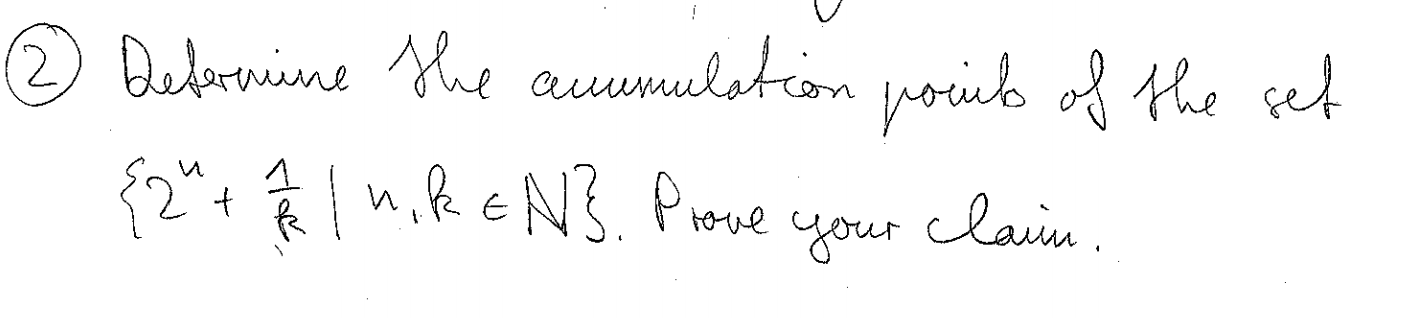 ② Determine the accumulation points of the set
{2ⁿ + 1/k | n, k ∈ ℕ}. Prove your claim.